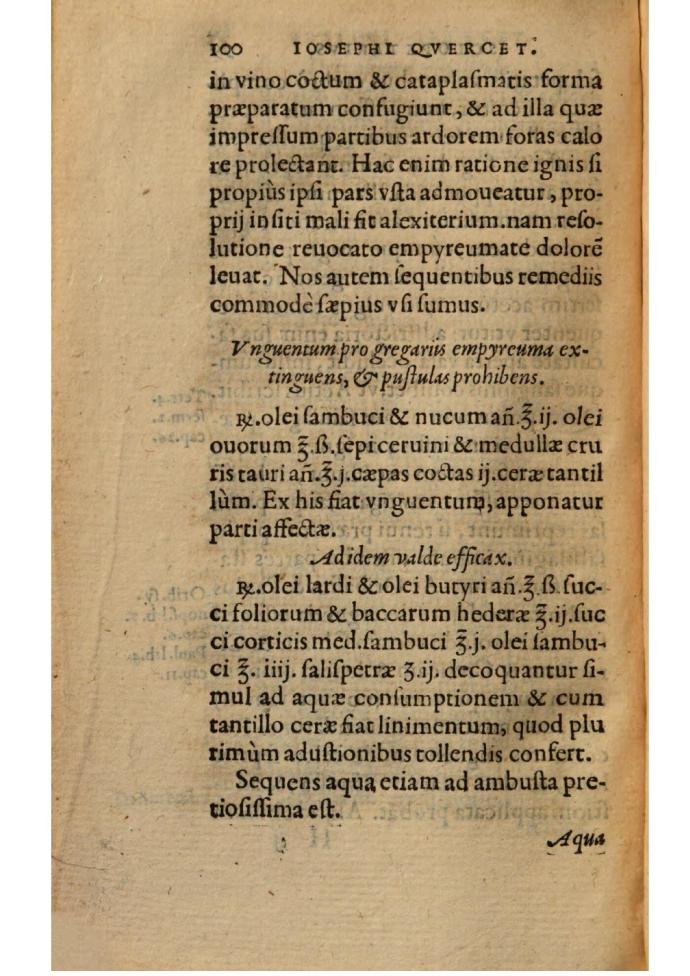 100 IOSEPHI QVERCET.
in vino coctum & cataplaſmatis forma
præparatum confugiunt, & ad illa quæ
impreſſum partibus ardorem foras calo
re prolectant. Hac enim ratione ignis ſi
propiùs ipſi pars vſta admoueatur, pro-
prij inſiti mali fit alexiterium. nam reſo-
lutione reuocato empyreumate dolorē
leuat. Nos autem ſequentibus remediis
commodè ſæpius vſi ſumus.
Vnguentum pro gregariis empyreuma ex-
tinguens, & puſtulas prohibens.
℞. olei ſambuci & nucum añ. ℥. ij. olei
ouorum ℥. ß. ſepi ceruini & medullæ cru
ris tauri añ. ℥. j. cæpas coctas ij. ceræ tantil
lùm. Ex his fiat vnguentum, apponatur
parti affectæ.
Ad idem valde efficax.
℞. olei lardi & olei butyri añ. ℥. ß. ſuc-
ci foliorum & baccarum hederæ ℥. ij. ſuc
ci corticis med. ſambuci ℥. j. olei ſambu-
ci ℥. iiij. ſaliſpetræ ʒ. ij. decoquantur ſi-
mul ad aquæ conſumptionem & cum
tantillo ceræ fiat linimentum, quod plu
rimùm aduſtionibus tollendis confert.
Sequens aqua etiam ad ambuſta pre-
tioſiſſima eſt.
Aqua